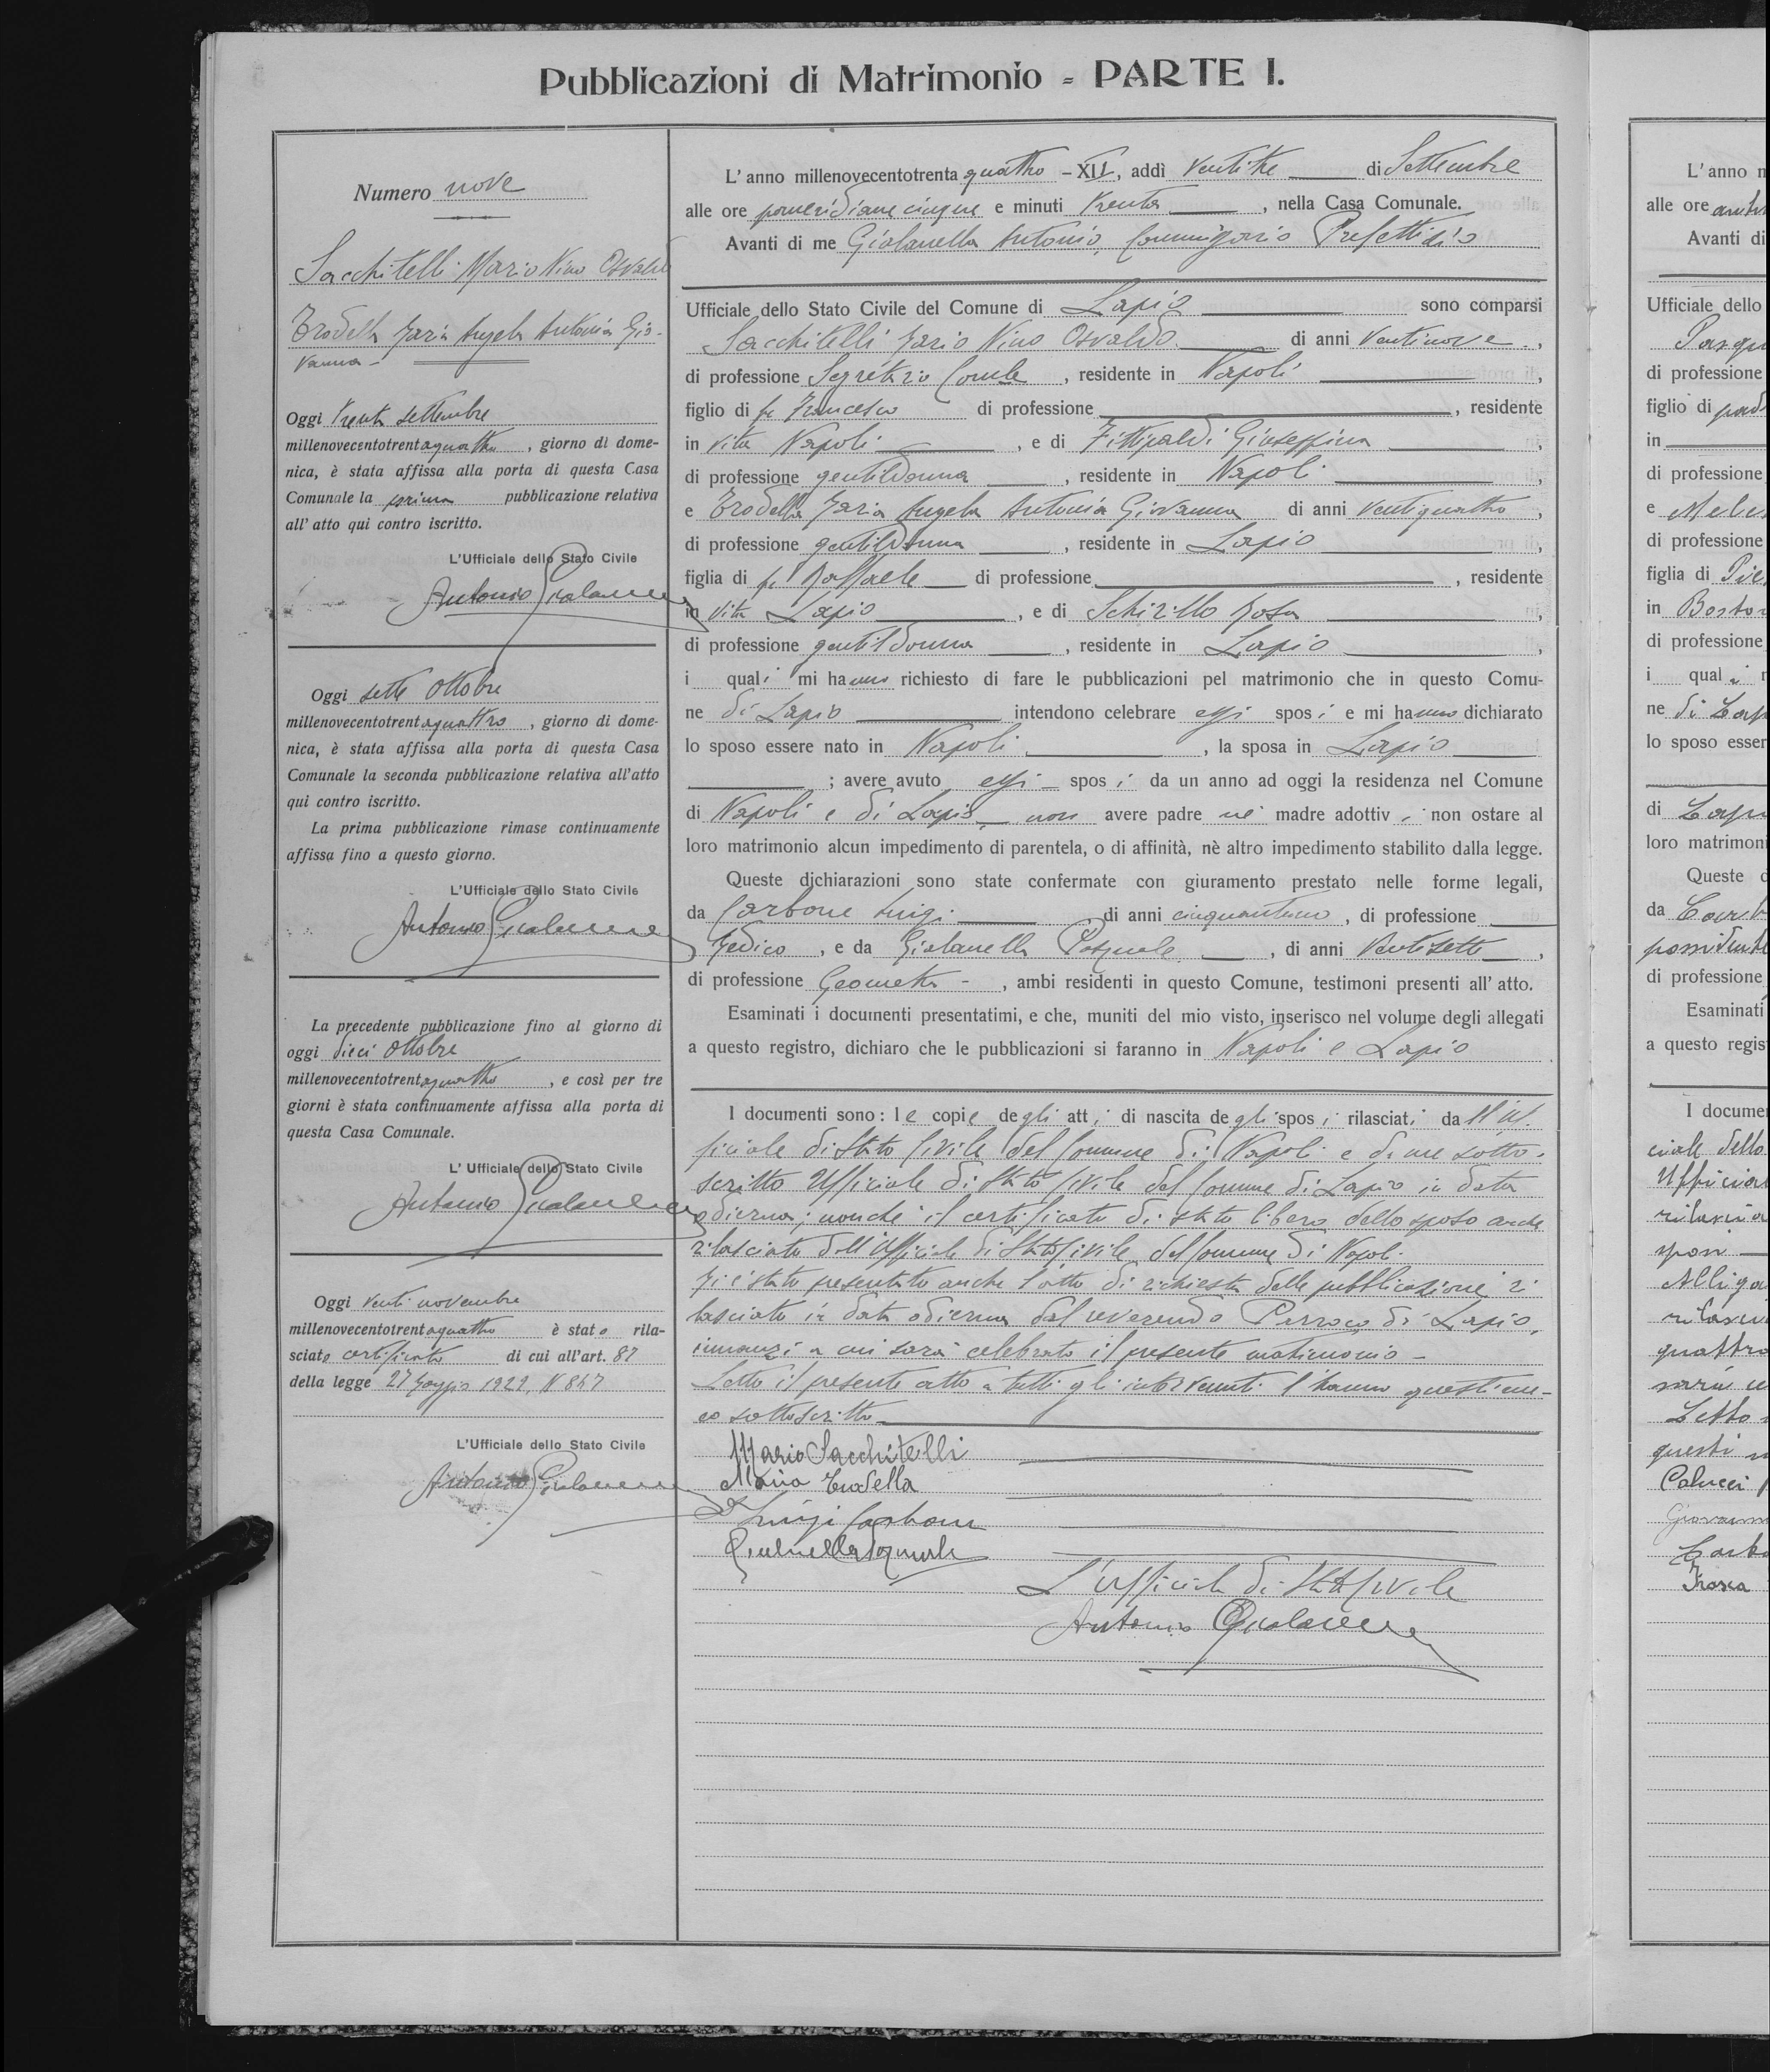 Pubblicazioni di Matrimonio = PARTE I.
Numero nove
Sacchitelli Mario Nino Osvaldo
Trodella Maria Angela Antonia Gio-
vanna -
Oggi trenta settembre
millenovecentotrentaquattro, giorno di dome-
nica, è stata affissa alla porta di questa Casa
Comunale la prima pubblicazione relativa
all' atto qui contro iscritto.
L'Ufficiale dello Stato Civile
Antonio Giolanella
Oggi sette ottobre
millenovecentotrentaquattro, giorno di dome-
nica, è stata affissa alla porta di questa Casa
Comunale la seconda pubblicazione relativa all'atto
qui contro iscritto.
La prima pubblicazione rimase continuamente
affissa fino a questo giorno.
L'Ufficiale dello Stato Civile
Antonio Giolanella
La precedente pubblicazione fino al giorno di
oggi dieci ottobre
millenovecentotrentaquattro, e così per tre
giorni è stata continuamente affissa alla porta di
questa Casa Comunale.
L' Ufficiale dello Stato Civile
Antonio Giolanella
Oggi venti novembre
millenovecentotrentaquattro è stato rila-
sciato certificato di cui all'art. 87
della legge 27 Maggio 1929, N 847
L'Ufficiale dello Stato Civile
Antonio Giolanella
L' anno millenovecentotrenta quattro - XII, addì ventitre di Settembre
alle ore pomeridiane cinque e minuti trenta, nella Casa Comunale.
Avanti di me Giolanella Antonio, Commissario Prefettizio
Ufficiale dello Stato Civile del Comune di Lapio sono comparsi
Sacchitelli Mario Nino Osvaldo di anni ventinove,
di professione Segretario Comle, residente in Napoli,
figlio di fu Francesco di professione, residente
in vita Napoli, e di Fittipaldi Giuseppina,
di professione gentildonna, residente in Napoli,
e Trodella Maria Angela Antonia Giovanna di anni ventiquattro,
di professione gentildonna, residente in Lapio,
figlia di fu Raffaele di professione, residente
in vita Lapio, e di Schirillo Rosa,
di professione gentildonna, residente in Lapio,
i quali mi hanno richiesto di fare le pubblicazioni pel matrimonio che in questo Comu-
ne di Lapio intendono celebrare essi sposi e mi hanno dichiarato
lo sposo essere nato in Napoli, la sposa in Lapio
; avere avuto essi sposi da un anno ad oggi la residenza nel Comune
di Napoli e di Lapio, non avere padre nè madre adottivi non ostare al
loro matrimonio alcun impedimento di parentela, o di affinità, nè altro impedimento stabilito dalla legge.
Queste dichiarazioni sono state confermate con giuramento prestato nelle forme legali,
da Carbone Luigi, di anni cinquantuno, di professione
Medico, e da Giolanella Pasquale, di anni ventisette,
di professione Geometra -, ambi residenti in questo Comune, testimoni presenti all' atto.
Esaminati i documenti presentatimi, e che, muniti del mio visto, inserisco nel volume degli allegati
a questo registro, dichiaro che le pubblicazioni si faranno in Napoli e Lapio
I documenti sono: le copie degli atti di nascita degli sposi rilasciati dall'Uf-
ficiale di Stato Civile del Comune di Napoli e da me sotto-
scritto Ufficiale di Stato Civile del Comune di Lapio in data
odierna; nonchè il certificato di stato libero dello sposo anche
rilasciato dall'Ufficiale di Stato Civile del Comune di Napoli.
Mi è stato presentato anche l'atto di richiesta delle pubblicazioni ri
lasciato in data odierna dal reverendo Parroco di Lapio,
innanzi a cui sarà celebrato il presente matrimonio -
Letto il presente atto a tutti gli intervenuti l'hanno questi me-
co sottoscritto
Mario Sacchitelli
Maria Trodella
Dr Luigi Carbone
Giolanella Pasquale
L'Ufficiale di Stato Civile
Antonio Giolanella
L' anno
alle ore
Avanti di
Ufficiale dello
di professione
figlio di
in
di professione
e
di professione
figlia di
in Boston
di professione
i quali
ne di
lo sposo esser
di
loro matrimoni
Queste
da
di professione
Esaminati
a questo regis
I docume
ciale dello
Ufficial
sposi
quattro
Letto
questi
Colucci